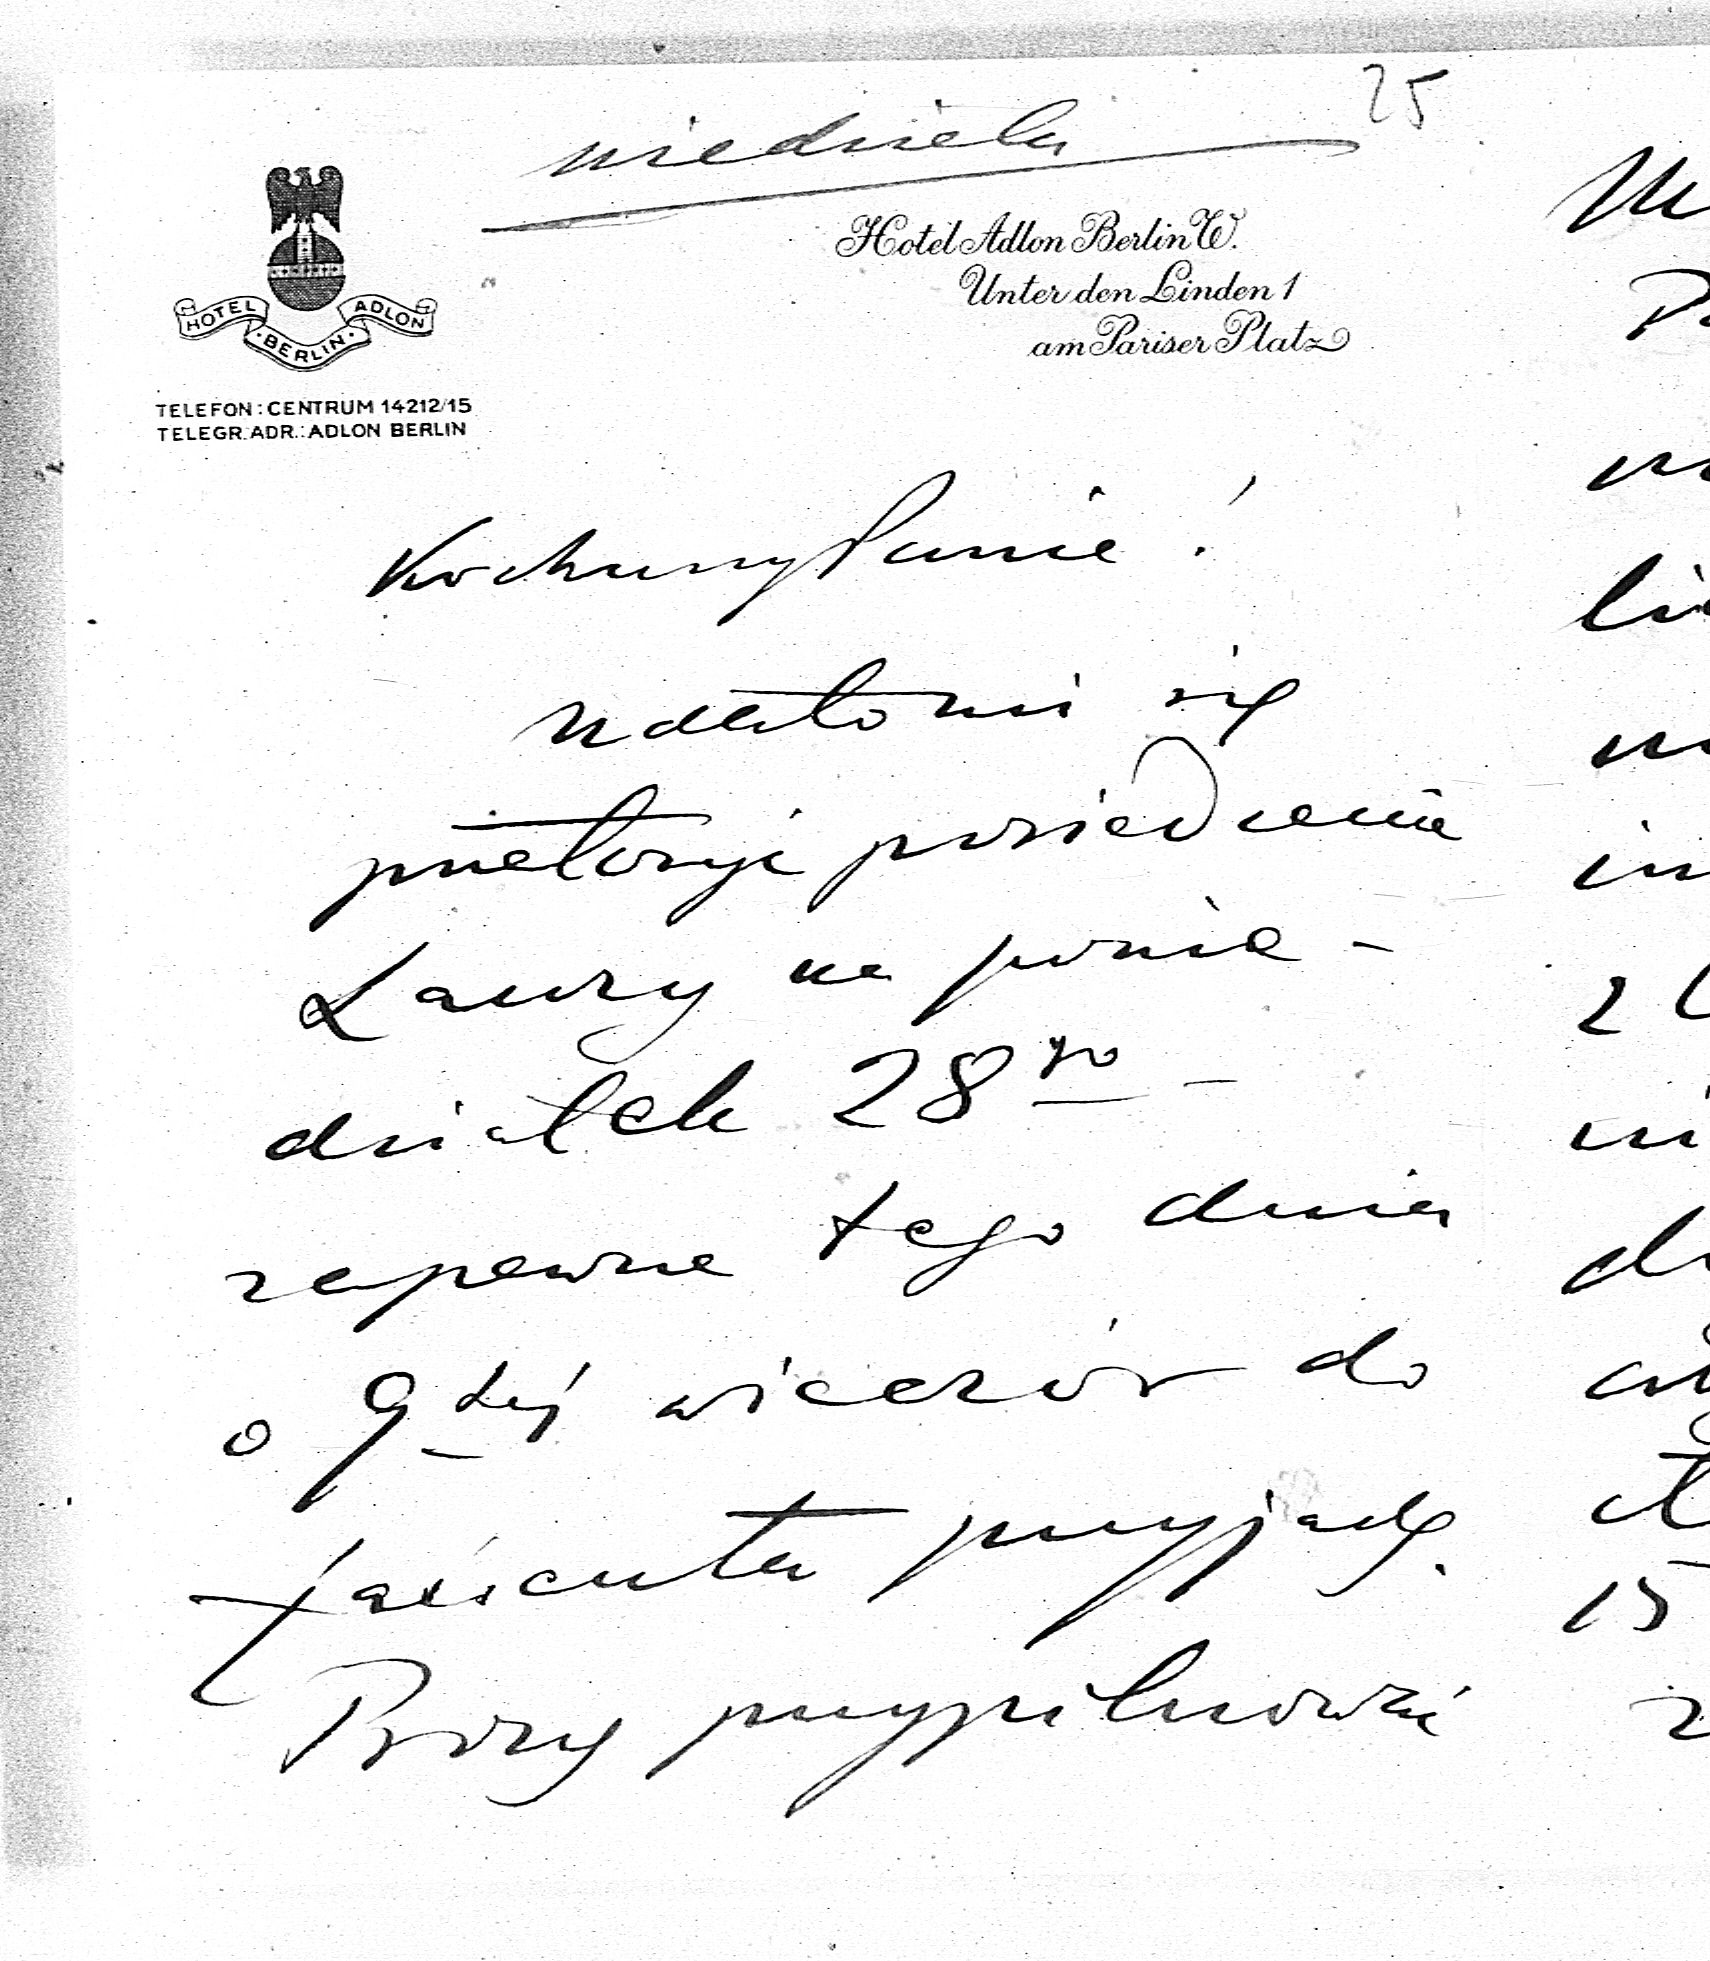 25
niedziela
Hotel Adlon Berlin W.
Unter den Linden 1
am Pariser Platz
HOTEL ADLON
·BERLIN·
TELEFON: CENTRUM 14212/15
TELEGR. ADR.: ADLON BERLIN
Kochany Panie!
udało mi się
przełożyć posiedzenie
Lawry na ponie-
działek 28go –
zapewne tego dnia
o 9tej wieczór do
Łańcuta przyjadę.
Proszę przypilnować